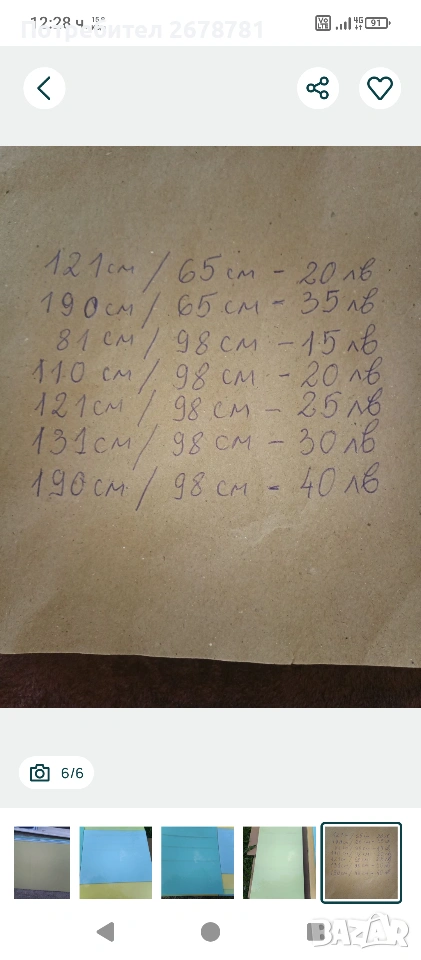 12:28 ч.
Потребител 2678781
4G
91
121 см / 65 см - 20 лв
190 см / 65 см - 35 лв
81 см / 98 см - 15 лв
110 см / 98 см - 20 лв
121 см / 98 см - 25 лв
131 см / 98 см - 30 лв
190 см / 98 см - 40 лв
6/6
BAZAR